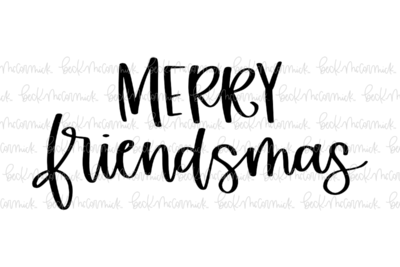 MERRY
friendsmas